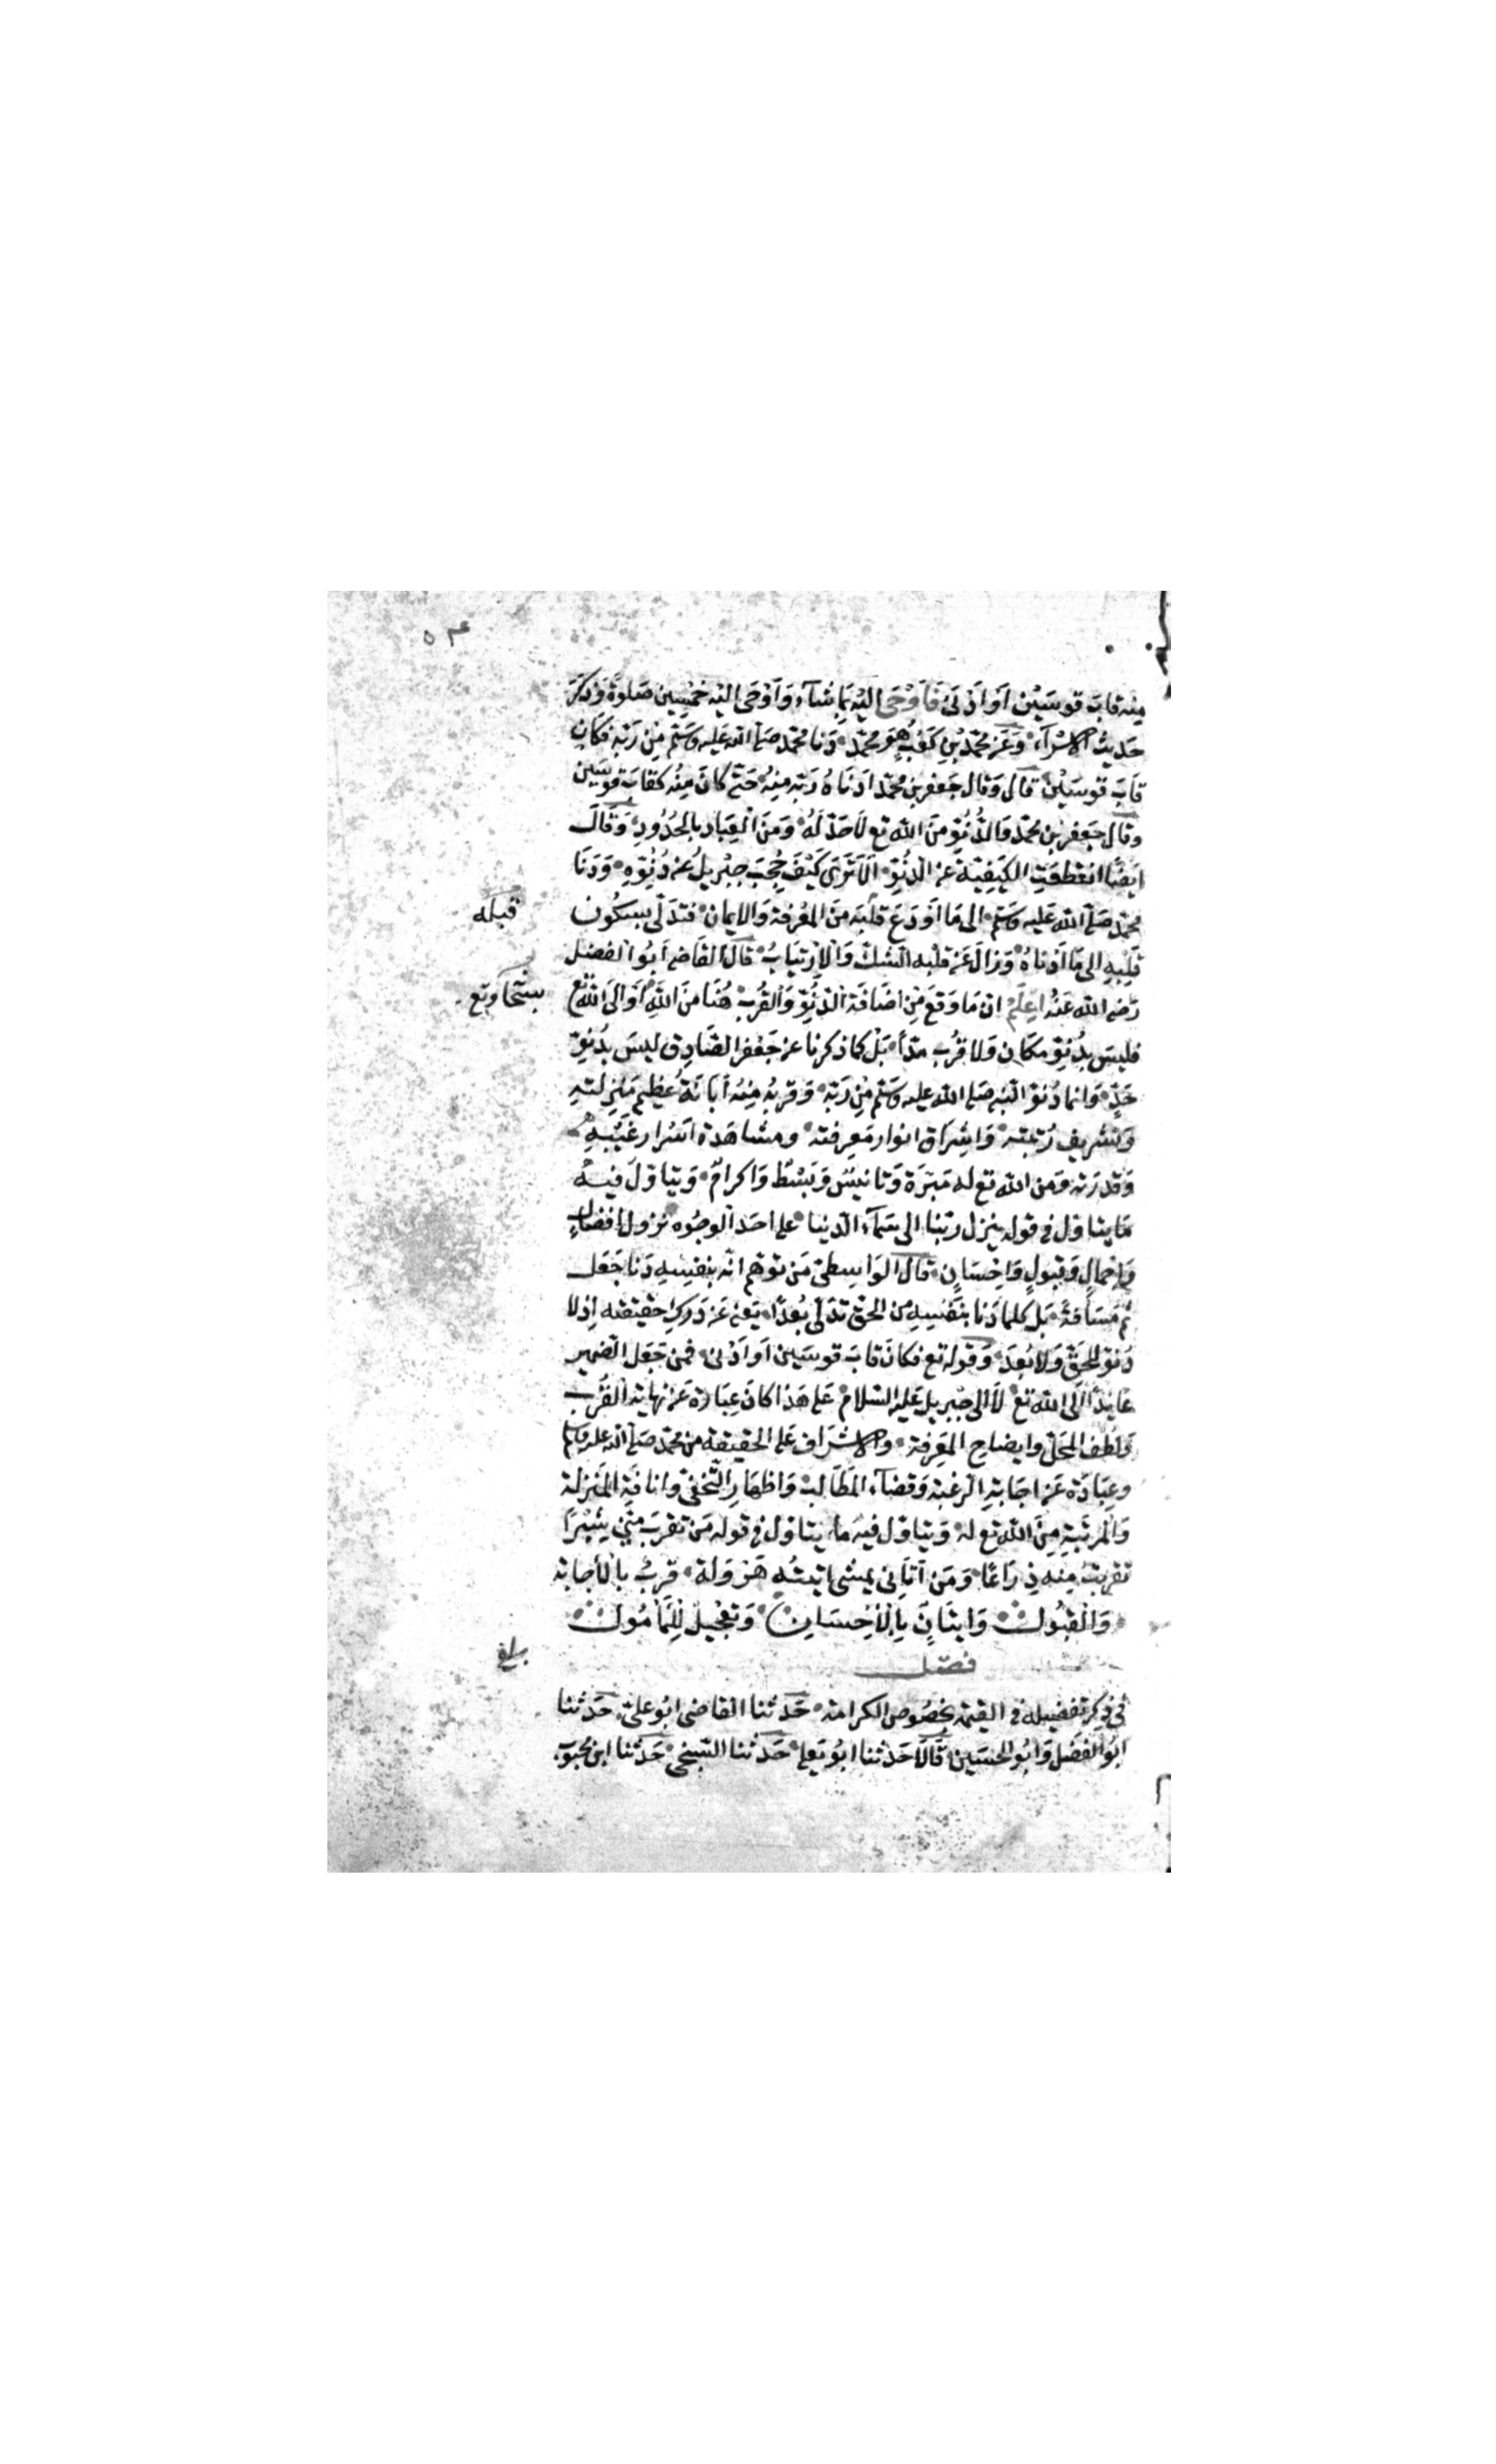 ٥٣
مِنه قابَ قوسَيْن اَو اَدْنىٰ فَاَوْحَى اليْه بِمَا شآء وَاَوْحَى اليْه خمْسِين صَلوةً وَذكَرَ
حَديثَ الاسْرآء وَعَن محمّد بْنِ كَعْبٍ هُوَ محمّد دَنا محمّد صَلّى الله عَليه وسَلّم مِنْ رَبّه فكانَ
قابَ قوسَيْن قال وَقال جَعفر بن محمّد ادنَاهُ رَبّه مِنهُ حَتّى كانَ مِنْه كقابَ قوسَين
وقال جَعفر بن محمّد وَالدُّنُوّ مِنَ الله تع لاحَدّ لَهُ وَمِنَ العِبَاد بالحُدُودِ وَقالَ
اَيضًا انقطعَتِ الكَيفيّة عَن الدنُوّ اَلاَ تَرَى كَيْفَ حُجِبَ جِبْريلُ عَن دُنُوّهِ وَدَنَا
محمّد صَلّى الله عَليه وسَلّم الى مَا اَوْدَعَ قلْبَه مِنَ المعْرفة وَالايمان فتدَلّى بسكُون
قبله
قَلْبِهِ الى مَا اَدْناهُ وَزالَ عَن قلْبه الشكّ وَالارْتيَابُ قال القَاضى اَبُو الفضل
رَضى الله عَنْهُ اعْلَمْ ان مَا وَقعَ مِنْ اضَافَة الدّنُوّ وَالقُرْب هُنَا منَ اللهِ اَوْ الىَ الله تع
فليسَ بدُنوّ مكان وَلا قُرْب مدًا بَلْ كما ذكرنا عن جَعْفر الصّادِق ليسَ بدُنوّ
حَدّ وَانما دُنوّ النّبى صَلّى الله عليه وسَلّم مِنْ رَبّه وَقربُه مِنْهُ اَبَانَةُ عظيم مَنزلتهِ
وَتشريف رُتبته وَاشراق انوار مَعرفته ومشاهَدة اَسْرار غَيْبهِ
وَقدرَته وَمن الله تع له مَبَرّة وَتانيسٌ وَبَسْط وَاكرامٌ وَيتاوّلَ فيهِ
مَا يتاوّل فى قوله ينزل ربّنا الى سَمآء الدّنيا على احَد الوجُوه نزول افضالٍ
وَاجمالٍ وَقبولٍ وَاحْسَانٍ قال الوَاسِطىّ مَن توهّم انّه بنفسِهِ دَنا جَعَل
ثمّ مَسَافةً بَل كلما دَنا بنَفسِهِ من الحقّ تدَلّى بُعْدًا يَعنى عَن دَركِ حقيقته اِذ لا
دُنوّ للحقّ وَلا بُعدَ وَقوله تع فكانَ قابَ قوسَين اَو اَدْنىٰ فمن جَعَل الضمير
عايدًا الَى الله تع لاَ الىَ جبْريل عَليْه السّلام عَلى هَذا كانَ عِبَارة عَن نهاية القُرْب
وَلُطف المحَلّ وايضاح المعَرفة والاشراف عَلى الحقيقة من محمّد صَلّى الله عليه وسَلّم
وعِبَارَة عَن اجَابة الرغبة وَقضآء المَطَالب وَاظهَار التّحفّى وانافة المَنزلة
وَالمرتَبة مِنَ الله تع له وَيتاوّل فيه ما يتاوّل فى قوله مَن تقرّبَ منّى شِبْرًا
تقرّبتُ مِنه ذِرَاعًا وَمَن اَتاَنى يمشى اتيتُه هَرْوَلة قربٌ بالاجابة
وَالقبُول وَاتيَانٌ بالاحْسَان وَتعْجيلٌ للمَامُول
بلغ
فصْل
فى ذِكر تفضيله فى القيمة بخصُوص الكرامة حَدثنا القاضى ابُو علىّ حَدثنا
ابُو الفضْل وَابُو الحسَين قالاَ حَدثنا ابُو يَعلى حَدثنا السّنجى حَدثنا ابن محبُوب